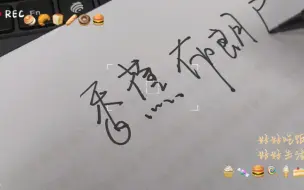 REC
香蕉布朗
好好吃饭
好好生活